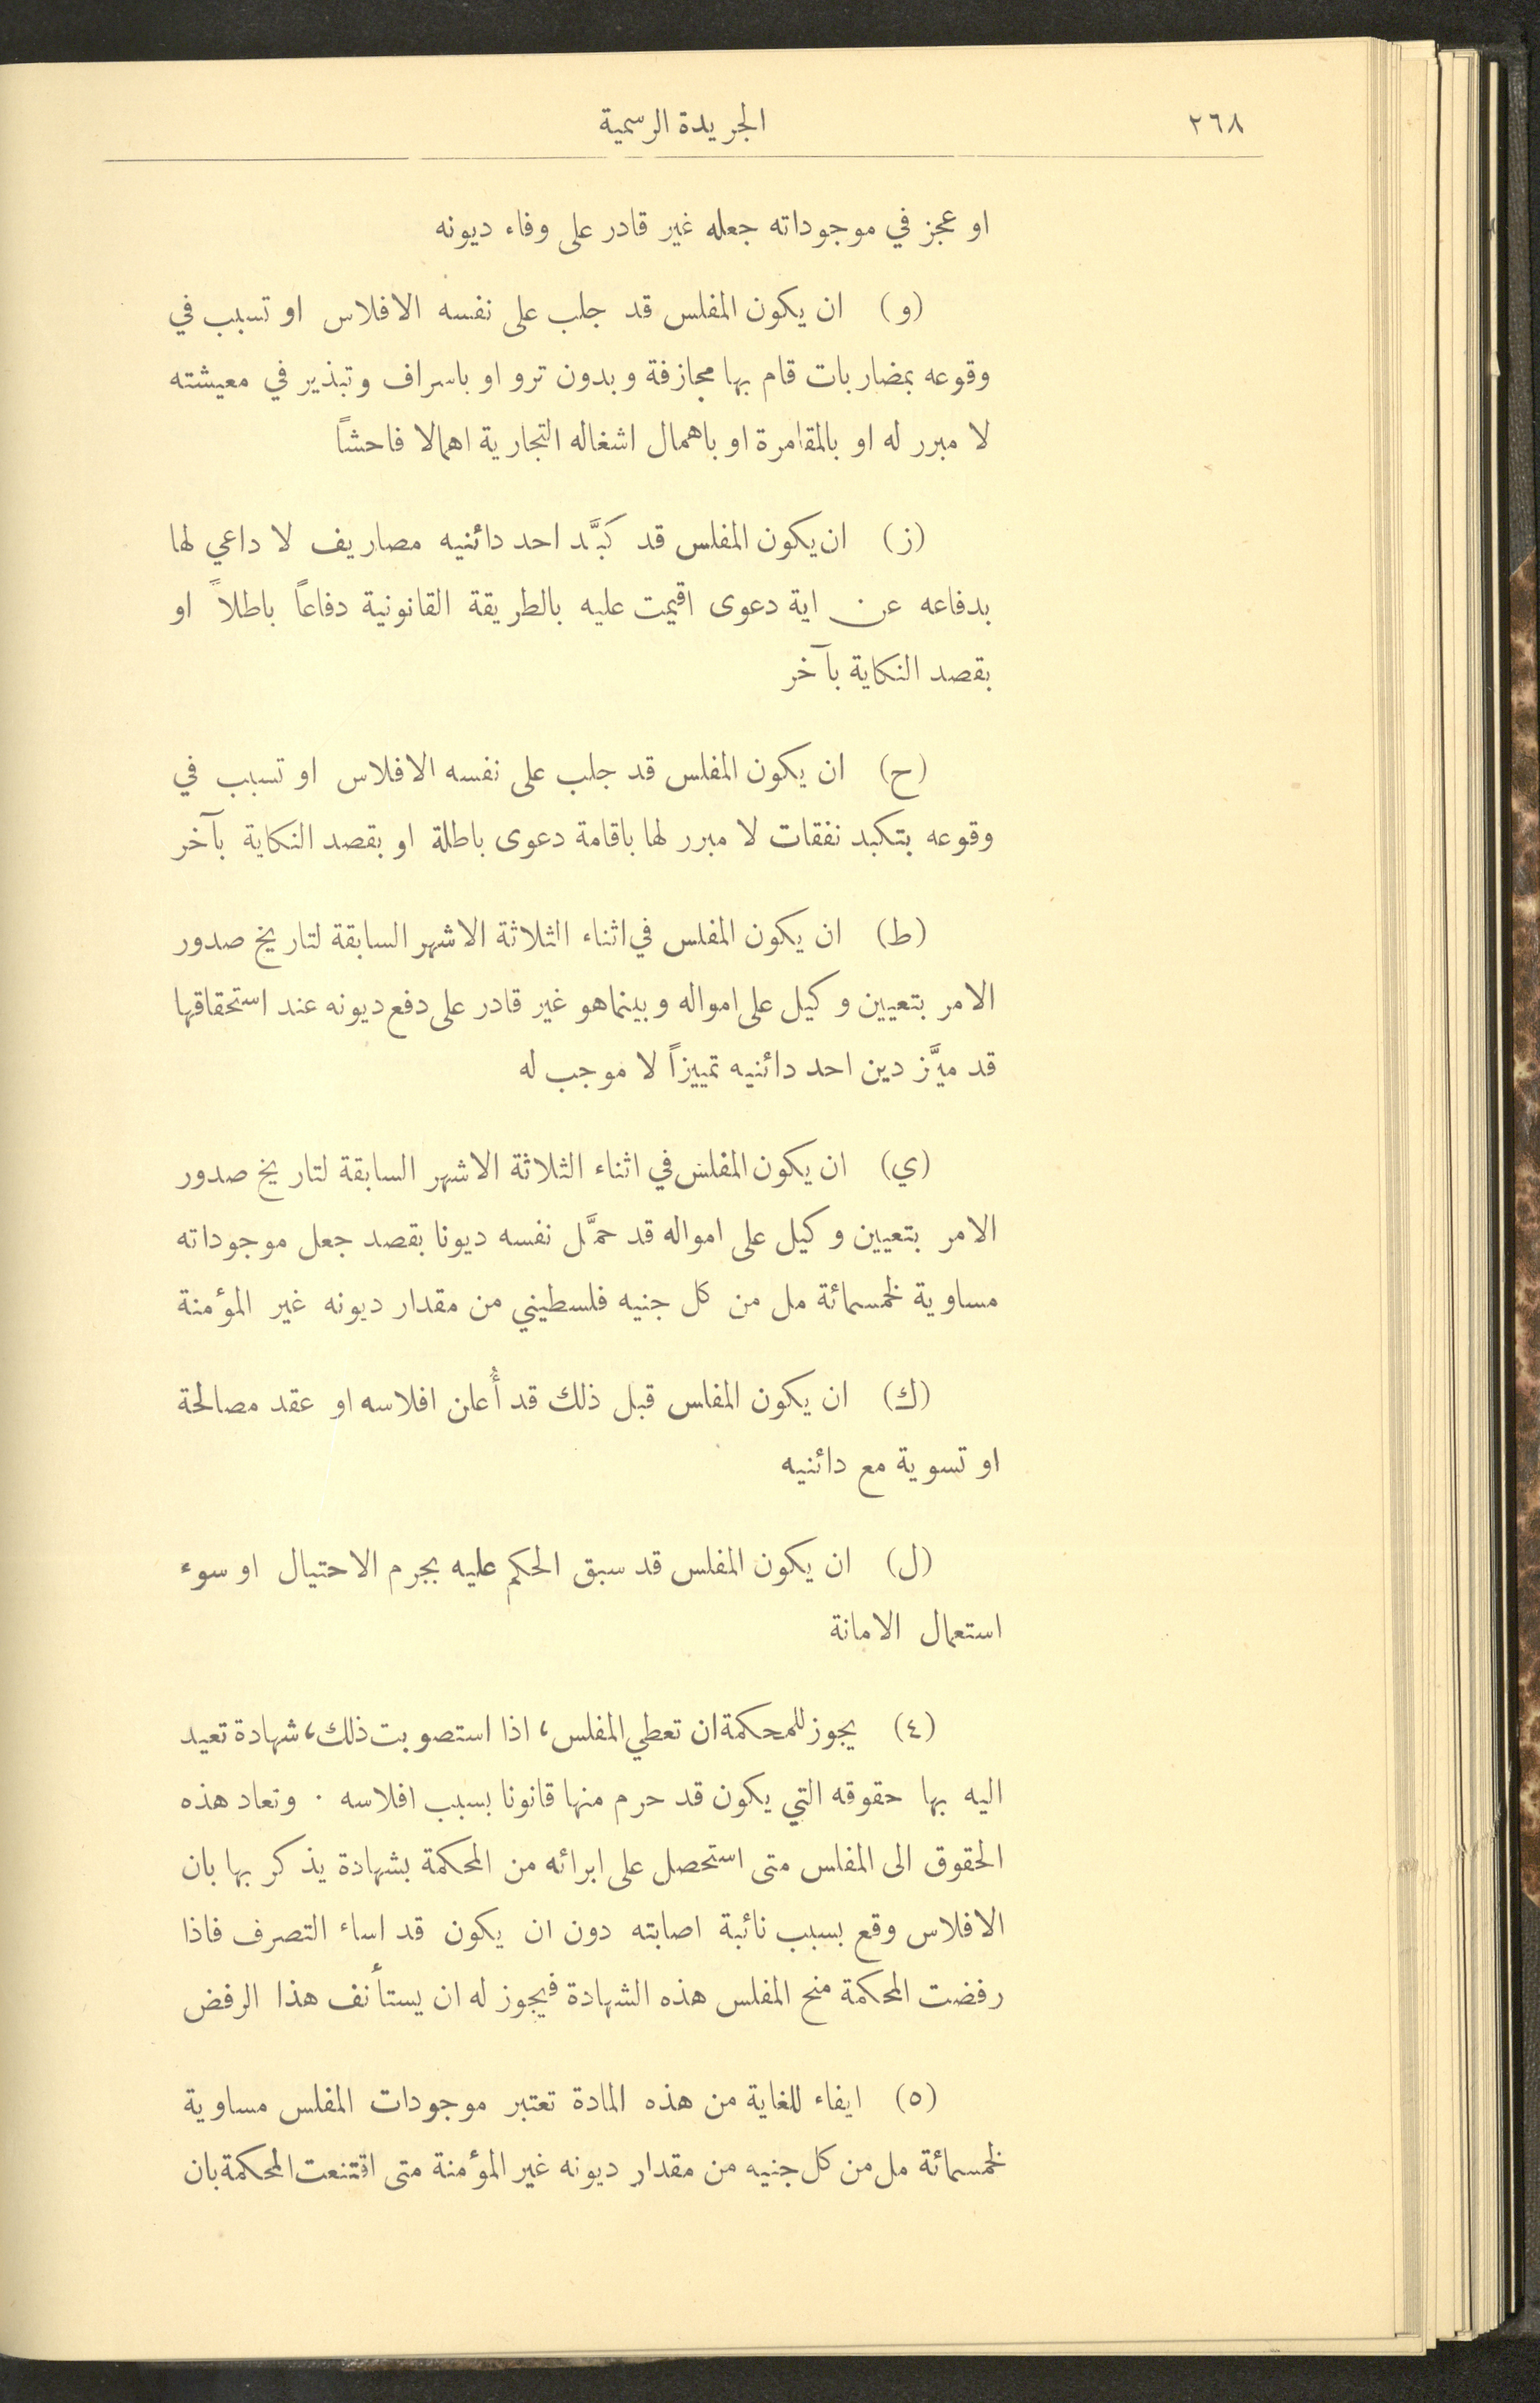 ٢٦٨
الجريدة الرسمية
او عجز في موجوداته جعله غير قادر على وفاء ديونه
(و) ان يكون المفلس قد جلب على نفسه الافلاس او تسبب في
وقوعه بمضاربات قام بها مجازفة وبدون ترو او باسراف وتبذير في معيشته
لا مبرر له او بالمقامرة او باهمال اشغاله التجارية اهمالا فاحشاً
(ز) ان يكون المفلس قد كبَّد احد دائنيه مصاريف لا داعي لها
بدفاعه عن اية دعوى اقيمت عليه بالطريقة القانونية دفاعاً باطلاً او
بقصد النكاية بآخر
(ح) ان يكون المفلس قد جلب على نفسه الافلاس او تسبب في
وقوعه بتكبد نفقات لا مبرر لها باقامة دعوى باطلة او بقصد النكاية بآخر
(ط) ان يكون المفلس في اثناء الثلاثة الاشهر السابقة لتاريخ صدور
الامر بتعيين وكيل على امواله وبينما هو غير قادر على دفع ديونه عند استحقاقها
قد ميَّز دين احد دائنيه تمييزاً لا موجب له
(ي) ان يكون المفلس في اثناء الثلاثة الاشهر السابقة لتاريخ صدور
الامر بتعيين وكيل على امواله قد حمَّل نفسه ديونا بقصد جعل موجوداته
مساوية لخمسمائة مل من كل جنيه فلسطيني من مقدار ديونه غير المؤمنة
(ك) ان يكون المفلس قبل ذلك قد أُعلن افلاسه او عقد مصالحة
او تسوية مع دائنيه
(ل) ان يكون المفلس قد سبق الحكم عليه بجرم الاحتيال او سوء
استعمال الامانة
(٤) يجوز للمحكمة ان تعطي المفلس، اذا استصوبت ذلك، شهادة تعيد
اليه بها حقوقه التي يكون قد حرم منها قانونا بسبب افلاسه . وتعاد هذه
الحقوق الى المفلس متى استحصل على ابرائه من المحكمة بشهادة يذكر بها بان
الافلاس وقع بسبب نائبة اصابته دون ان يكون قد اساء التصرف فاذا
رفضت المحكمة منح المفلس هذه الشهادة فيجوز له ان يستأنف هذا الرفض
(٥) ايفاء للغاية من هذه المادة تعتبر موجودات المفلس مساوية
لخمسمائة مل من كل جنيه من مقدار ديونه غير المؤمنة متى اقتنعت المحكمة بان